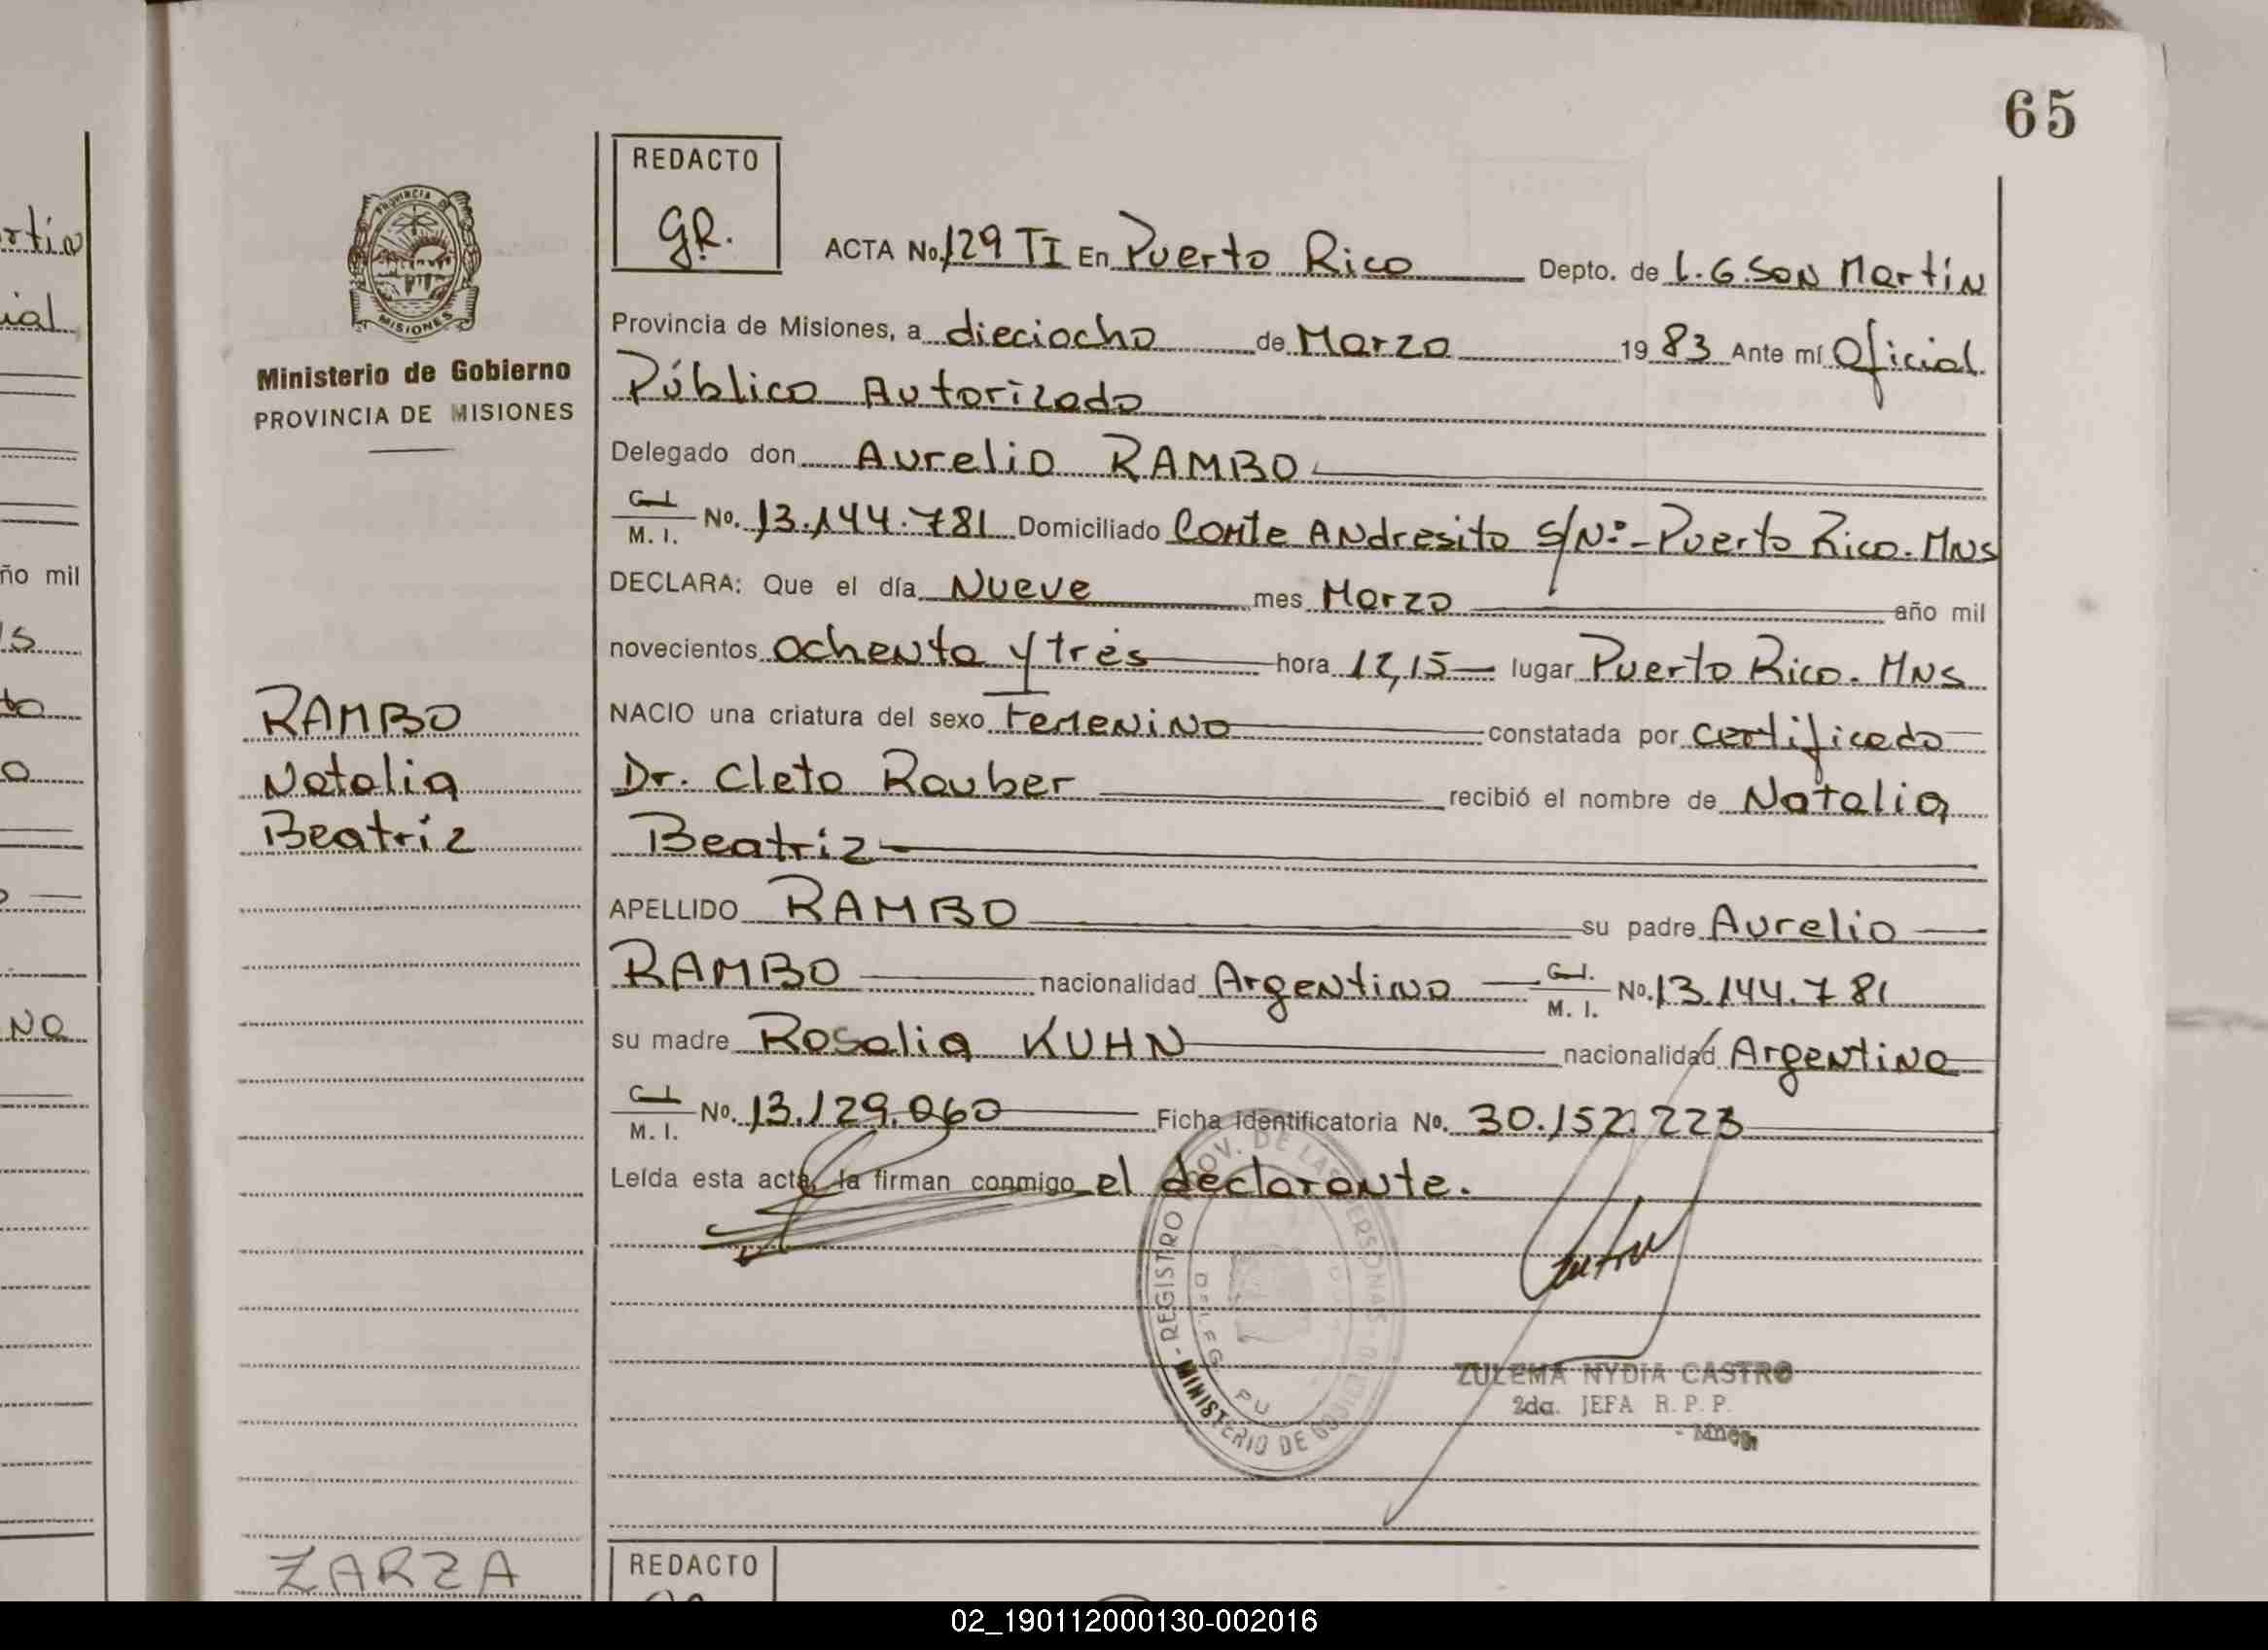 65
REDACTO
GR.
ACTA No. 129 TI En Puerto Rico Depto. de L.G.San Martín
Provincia de Misiones, a dieciocho de Marzo 1983 Ante mí Oficial
Público Autorizado
Delegado don Aurelio RAMBO
C.I. M. I. No. 13.144.781 Domiciliado Comte Andresito S/Nº- Puerto Rico. Mns
DECLARA: Que el día Nueve mes Marzo año mil
novecientos ochenta y tres hora 12,15 lugar Puerto Rico. Mns
NACIO una criatura del sexo Femenino constatada por certificado
Dr. Cleto Rauber recibió el nombre de Natalia
Beatriz
APELLIDO RAMBO su padre Aurelio
RAMBO nacionalidad Argentino C.I. M. I. No. 13.144.781
su madre Rosalia KUHN nacionalidad Argentina
C.I. M. I. No. 13.129.060 Ficha identificatoria No. 30.152.223
Leída esta acta, la firman conmigo el declarante.
PROVINCIA DE
MISIONES
Ministerio de Gobierno
PROVINCIA DE MISIONES
RAMBO
Natalia
Beatriz
REGISTRO PROV. DE LAS PERSONAS
MINISTERIO DE GOBIERNO
ZULEMA NYDIA CASTRO
2da. JEFA R. P. P.
- Mnes.
ZARZA
REDACTO
rtin
ial
ño mil
02_190112000130-002016